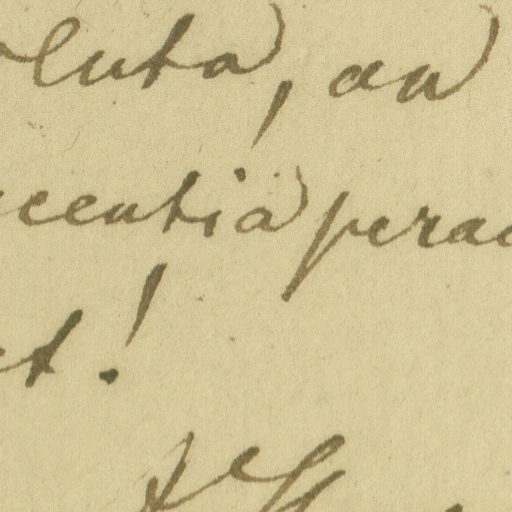 oluta, an
centia perac
et!